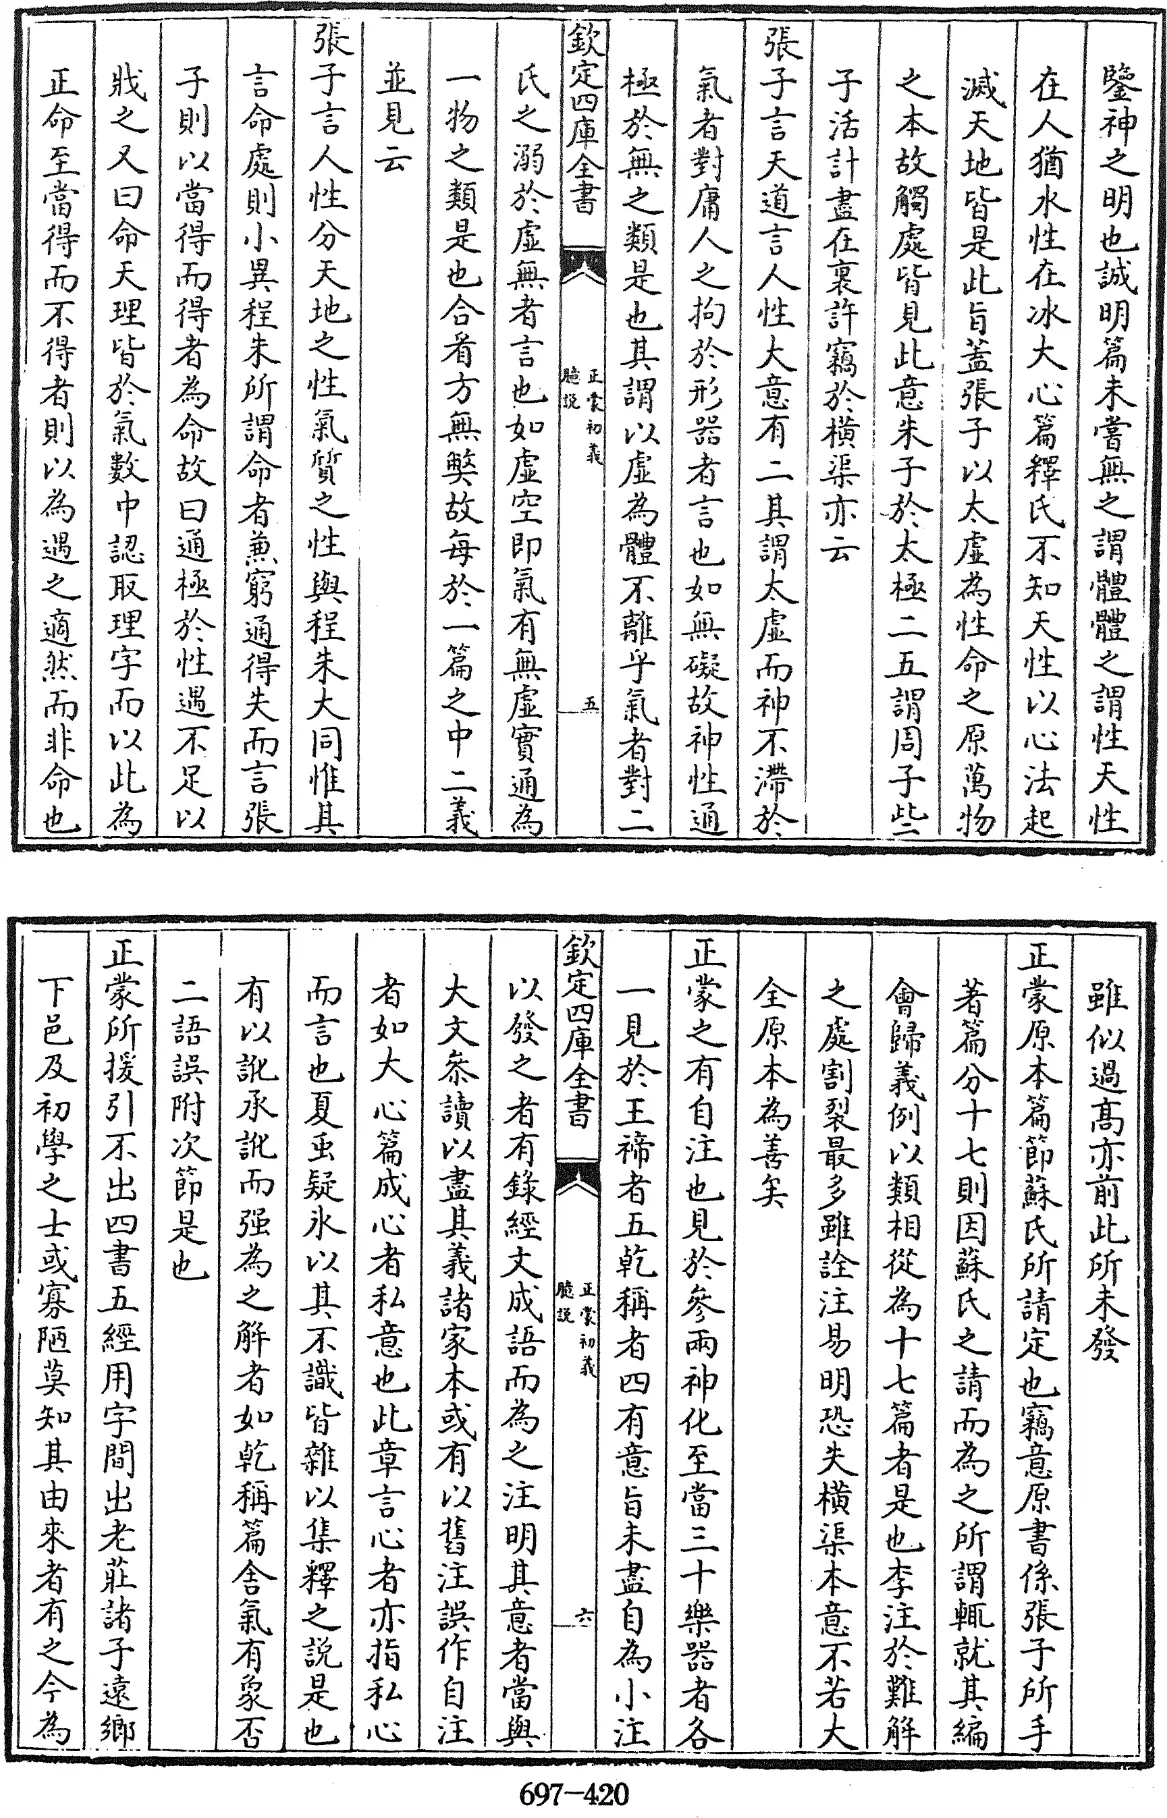 鑒神之明也誠明篇未嘗無之謂體體之謂性天性
在人猶水性在冰大心篇釋氏不知天性以心法起
滅天地皆是此旨蓋張子以太虛為性命之原萬物
之本故觸處皆見此意朱子於太極二五謂周子些
子活計盡在裏許竊於橫渠亦云
張子言天道言人性大意有二其謂太虛而神不滯於
氣者對庸人之拘於形器者言也如無礙故神性通
極於無之類是也其謂以虛為體不離乎氣者對二
欽定四庫全書
正蒙初義
臆説
五
氏之溺於虛無者言也如虛空即氣有無虛實通為
一物之類是也合看方無獘故每於一篇之中二義
並見云
張子言人性分天地之性氣質之性與程朱大同惟其
言命處則小異程朱所謂命者兼窮通得失而言張
子則以當得而得者為命故曰通極於性遇不足以
戕之又曰命天理皆於氣數中認取理字而以此為
正命至當得而不得者則以為遇之適然而非命也
雖似過高亦前此所未發
正蒙原本篇節蘇氏所請定也竊意原書係張子所手
著篇分十七則因蘇氏之請而為之所謂輒就其編
會歸義例以類相從為十七篇者是也李注於難解
之處割裂最多雖詮注易明恐失橫渠本意不若大
全原本為善矣
正蒙之有自注也見於參兩神化至當三十樂器者各
一見於王禘者五乾稱者四有意旨未盡自為小注
欽定四庫全書
正蒙初義
臆説
六
以發之者有錄經文成語而為之注明其意者當與
大文叅讀以盡其義諸家本或有以舊注誤作自注
者如大心篇成心者私意也此章言心者亦指私心
而言也夏蟲疑氷以其不識皆雜以集釋之説是也
有以訛承訛而强為之解者如乾稱篇舍氣有象否
二語誤附次節是也
正蒙所援引不出四書五經用字間出老莊諸子遠鄉
下邑及初學之士或寡陋莫知其由來者有之今為
697-420